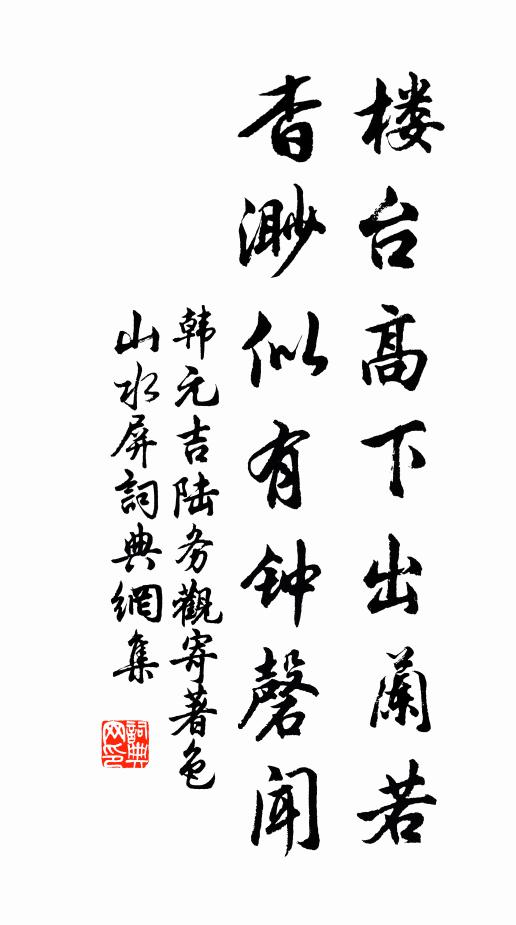 楼台高下出蘭若
杳渺似有钟磬闻
韩元吉陆务觀寄著色
山水屏詞典網集
詞典
网印